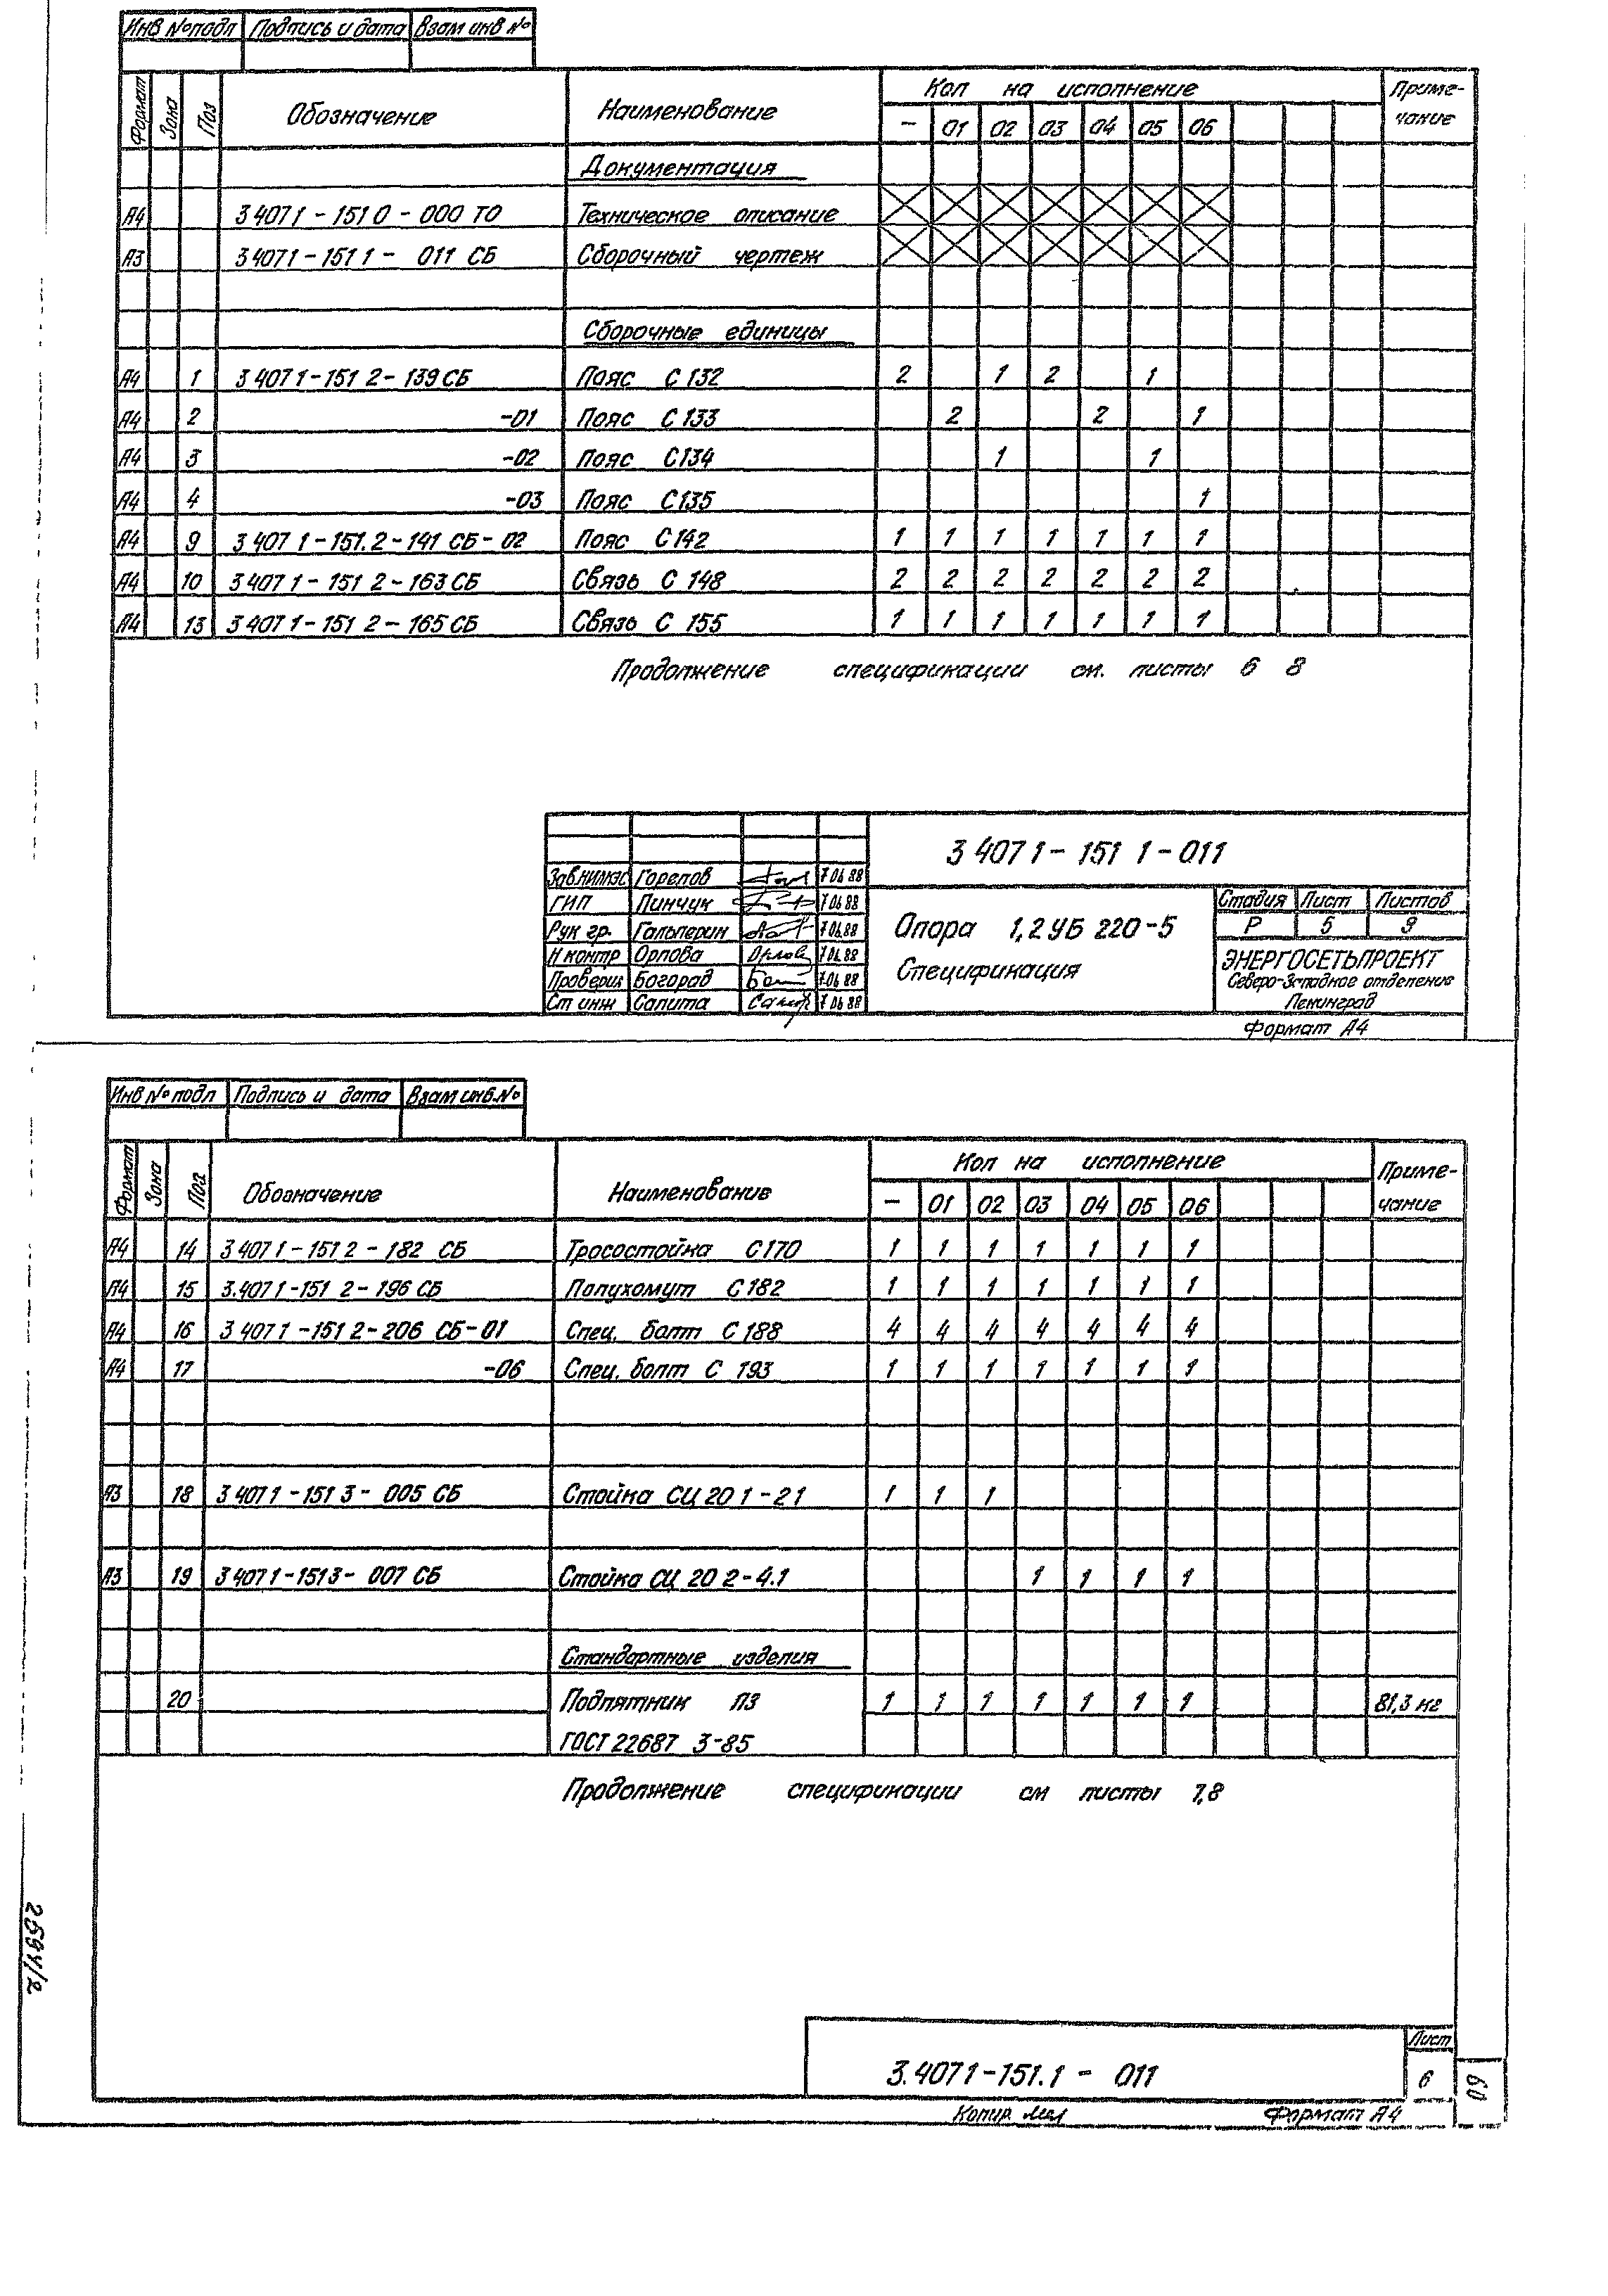 Инв №подл Подпись и дата Взам инв №
Формат Зона Поз Обозначение Наименование Кол на исполнение Приме-
чание
– 01 02 03 04 05 06
Документация
А4 3 407 1 - 151 0 - 000 ТО Техническое описание
А3 3 407 1 - 151 1 - 011 СБ Сборочный чертеж
Сборочные единицы
А4 1 3 407 1 - 151 2 - 139 СБ Пояс С 132 2 1 2 1
А4 2 -01 Пояс С 133 2 2 1
А4 3 -02 Пояс С134 1 1
А4 4 -03 Пояс С135 1
А4 9 3 407 1 - 151. 2 - 141 СБ - 02 Пояс С 142 1 1 1 1 1 1 1
А4 10 3 407 1 - 151 2 - 163 СБ Связь С 148 2 2 2 2 2 2 2
А4 13 3 407 1 - 151 2 - 165 СБ Связь С 155 1 1 1 1 1 1 1
Продолжение спецификации см. листы 6 8
3 407 1 - 151 1 - 011
Зав.НИЛЭС Горелов 7 06 88
ГИП Пинчук 7 06 88
Рук гр. Гальперин 7 06.88
Н контр Орлова 7.06.88
Проверил Богорад 7.06 88
Ст инж Сапита 7 06 88
Опора 1,2 УБ 220-5
Спецификация
Стадия Лист Листов
Р 5 9
ЭНЕРГОСЕТЬПРОЕКТ
Северо-Западное отделение
Ленинград
Формат А4
Инв № подл Подпись и дата Взам инв.№
Формат Зона Поз Обозначение Наименование Кол на исполнение Приме-
чание
– 01 02 03 04 05 06
А4 14 3 407 1 - 151 2 - 182 СБ Тросостойка С170 1 1 1 1 1 1 1
А4 15 3.407 1 - 151 2 - 196 СБ Полухомут С 182 1 1 1 1 1 1 1
А4 16 3 407 1 - 151 2 - 206 СБ - 01 Спец. болт С 188 4 4 4 4 4 4 4
А4 17 -06 Спец. болт С 193 1 1 1 1 1 1 1
А3 18 3 407 1 - 151 3 - 005 СБ Стойка СЦ 20 1 - 2 1 1 1 1
А3 19 3 407 1 - 151 3 - 007 СБ Стойка СЦ 20 2 - 4.1 1 1 1 1
Стандартные изделия
20 Подпятник П3 1 1 1 1 1 1 1 81,3 кг
ГОСТ 22687 3-85
Продолжение спецификации см листы 7,8
3. 407 1 - 151. 1 - 011
Лист
6
60
Копир
Формат А4